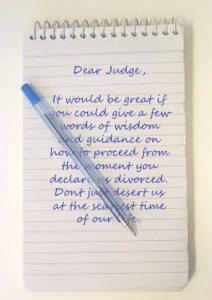 Dear Judge,
It would be great if
you could give a few
words of wisdom
and guidance on
how to proceed from
the moment you
declare us divorced.
Dont just desert us
at the scariest time
of our life.